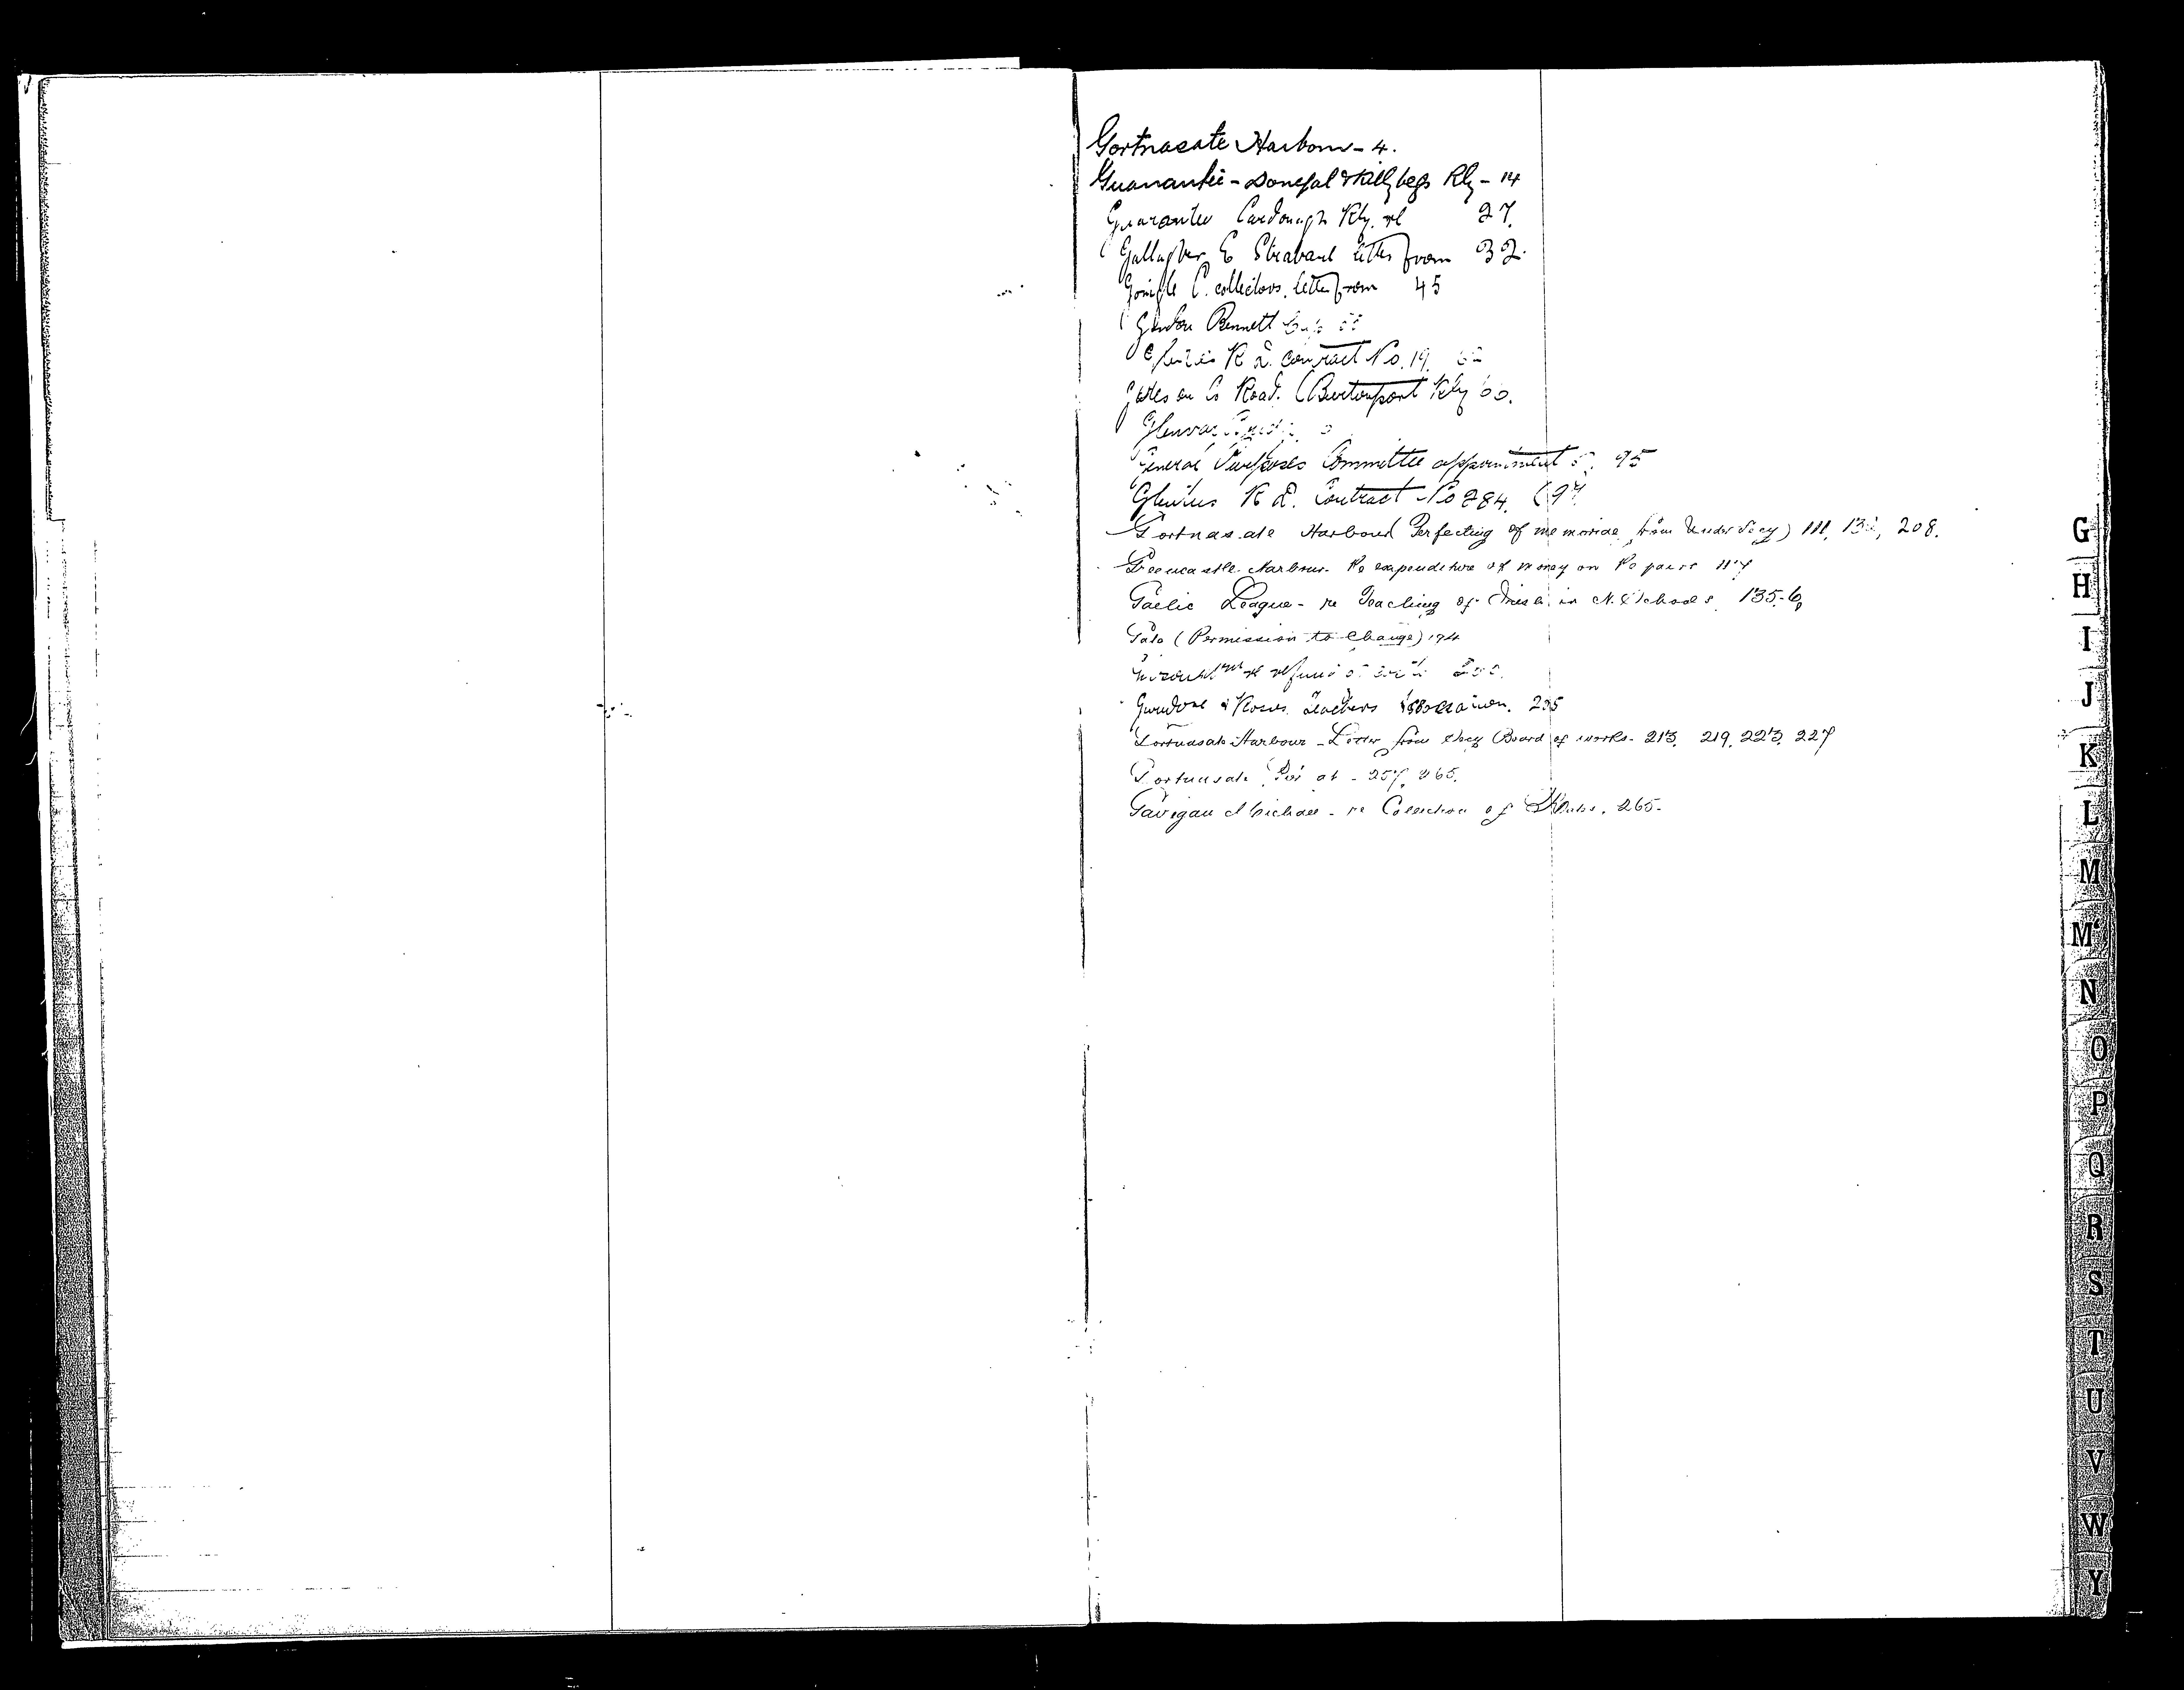 Gortnasate Harbour - 4.
Guarantee - Donegal & Killybegs Rly - 14
Guarantee Cardonagh Rly. re 27.
Gallagher E Strabane letter from 32.
Gonigle C. collectors. letter from 45
Gordon Bennett Cup
R D. Contract No. 19.
Gates on Co Road. (Burtonport Rly 60.
Glenvar
General Purposes Committee appointment 95
Glenties R D. Contract No 284. 97
Gortnasate Harbour Perfecting of memorial from Under Secy) 111, 208.
Greencastle Harbour - Re expenditure of money on Repairs 117
Gaelic League - re Teaching of Irish in N. Schools 135-6,
Gale (Permission to Change) 194
re refund of
Gweedore & Rosses Teachers Association. 205
Gortnasate Harbour - Letter from Secy Board of works - 213, 219, 223, 227
Gortnasate Pier at - 257, 265.
Gavigan Michael - re Collection of Rates. 265.
G
H
I
J
K
L
M
Mc
N
O
P
Q
R
S
T
U
V
W
Y